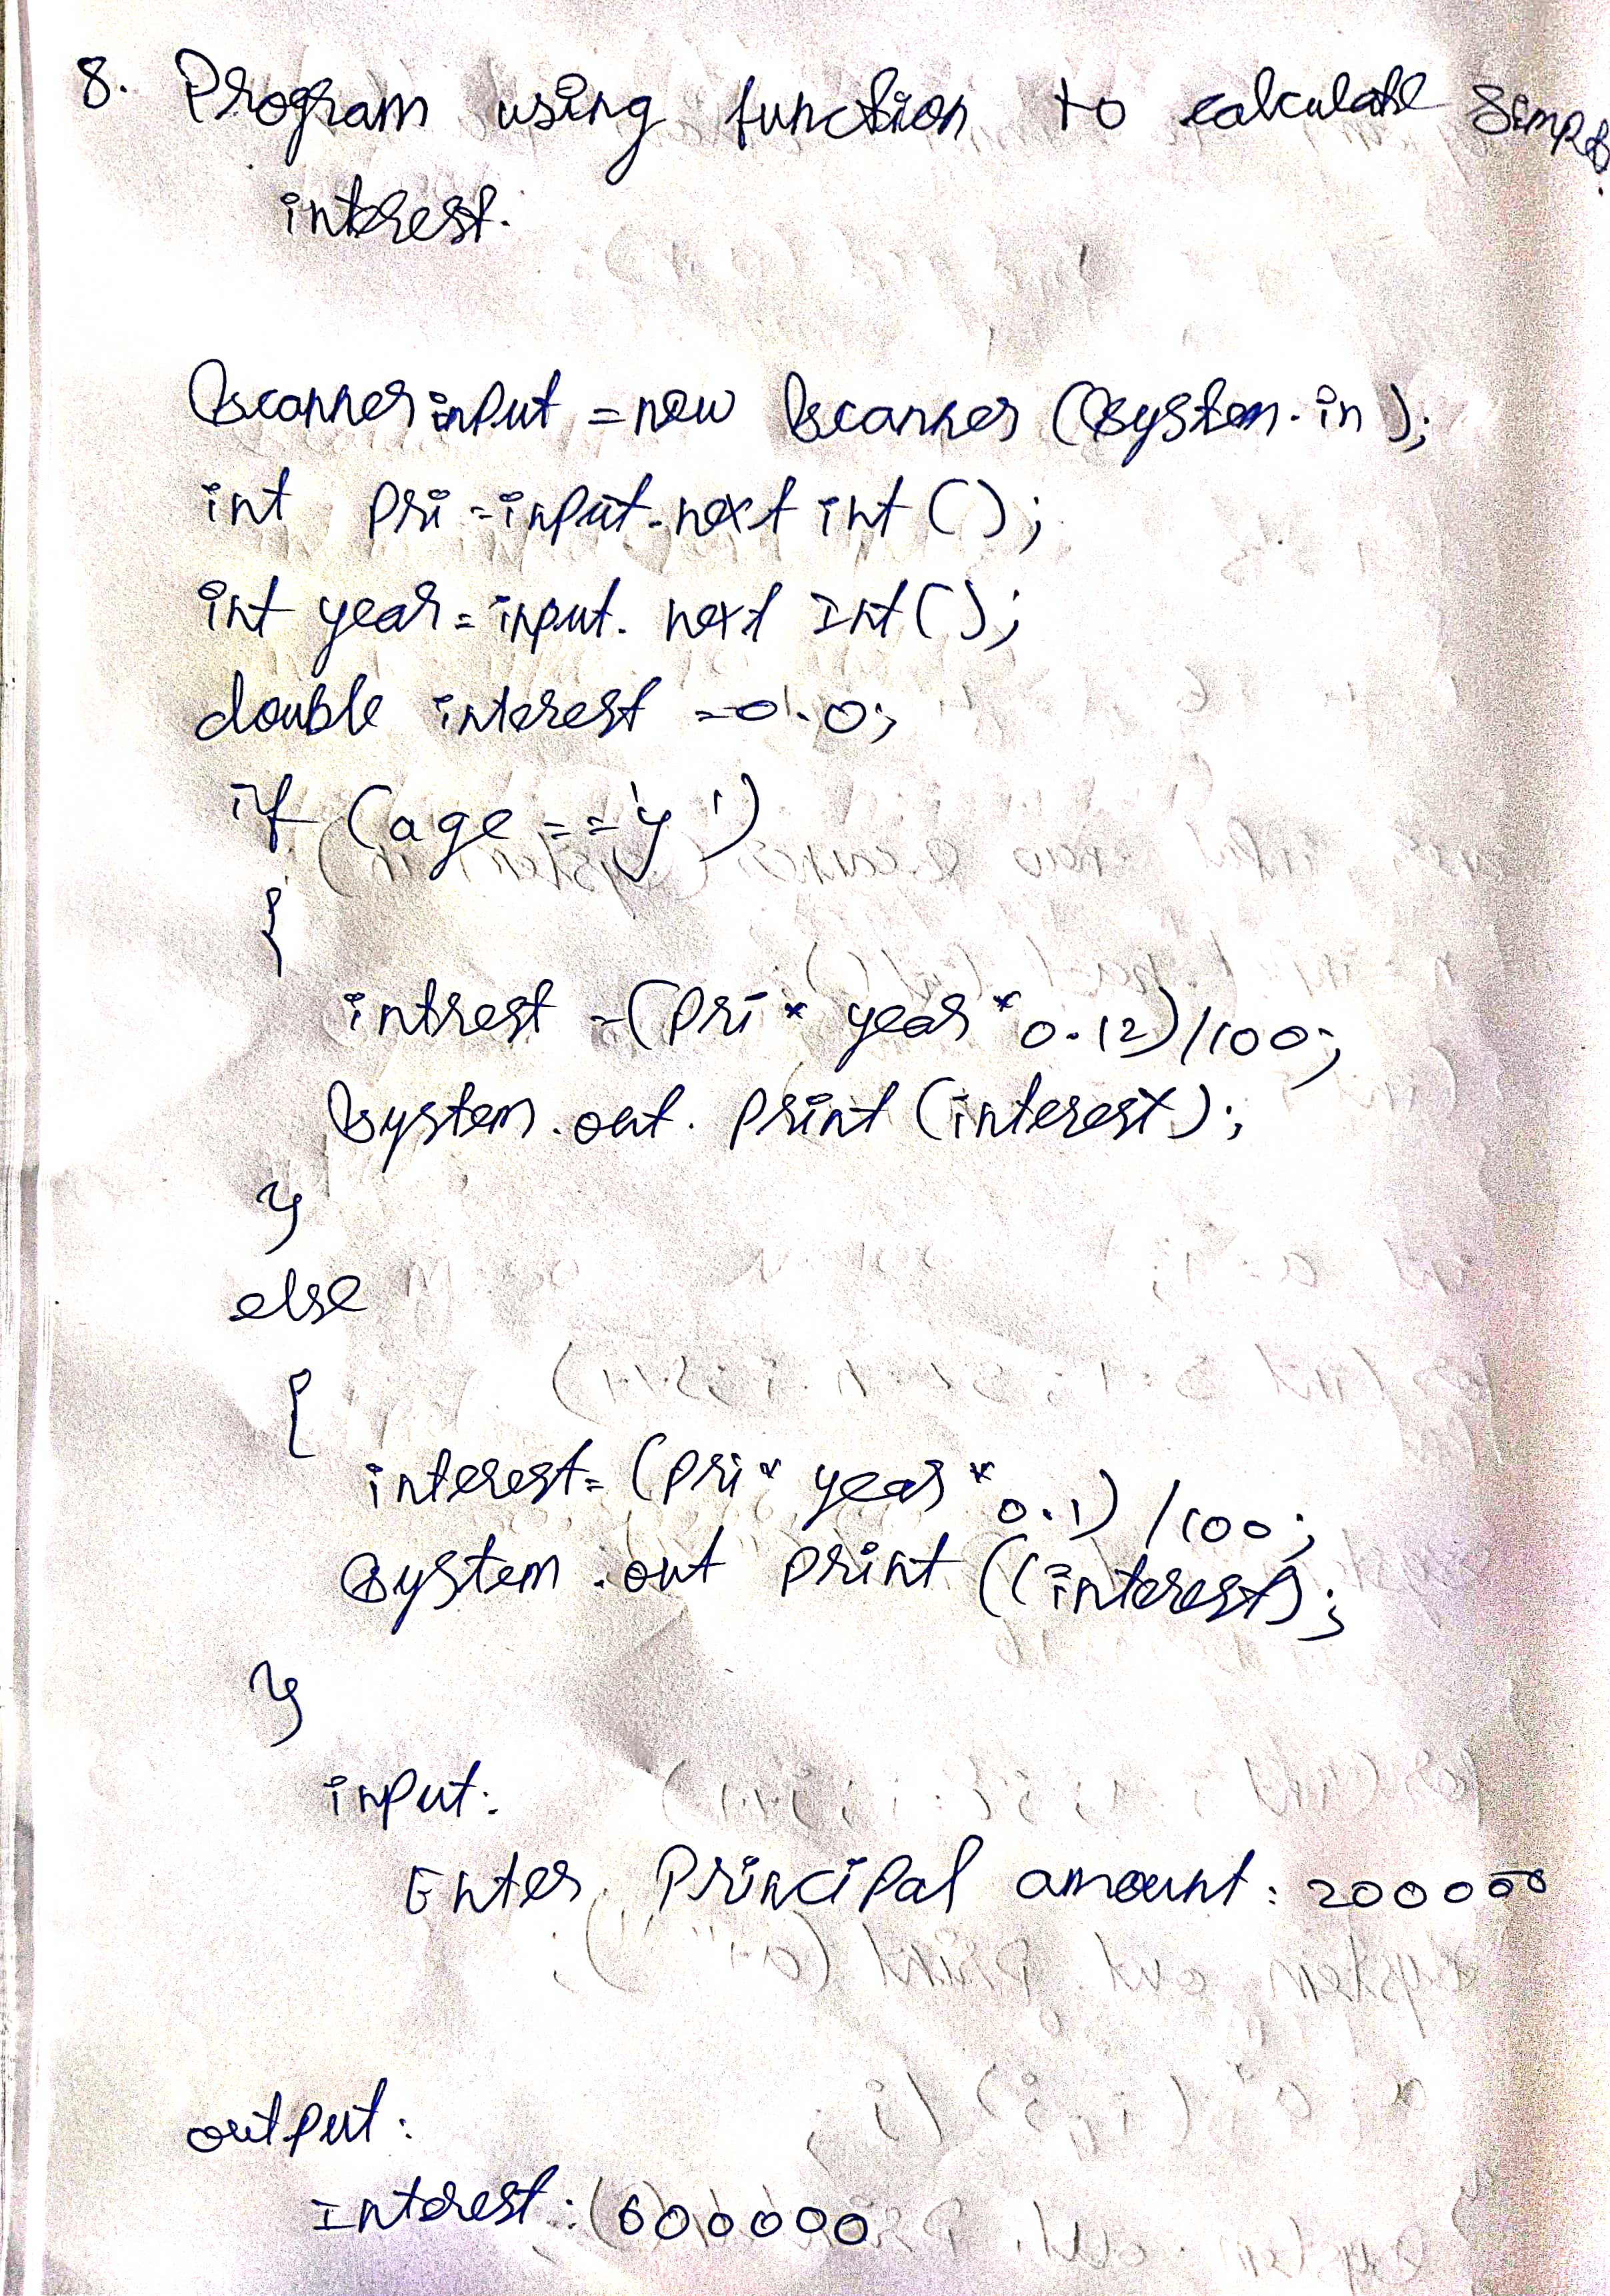 8. Program using function to calculate simple
interest.
Scanner input = new Scanner (System.in);
int pri = input.next int ();
int year = input. next Int ();
double interest = 0.0;
if (age == 'y')
{
intrest = (pri * year * 0.12)/100;
System.out. print (interest);
}
else
{
interest = (pri * year * 0.1) /100;
System.out print ((interest);
}
input:
Enter Principal amount: 200000
output:
Interest: 600000